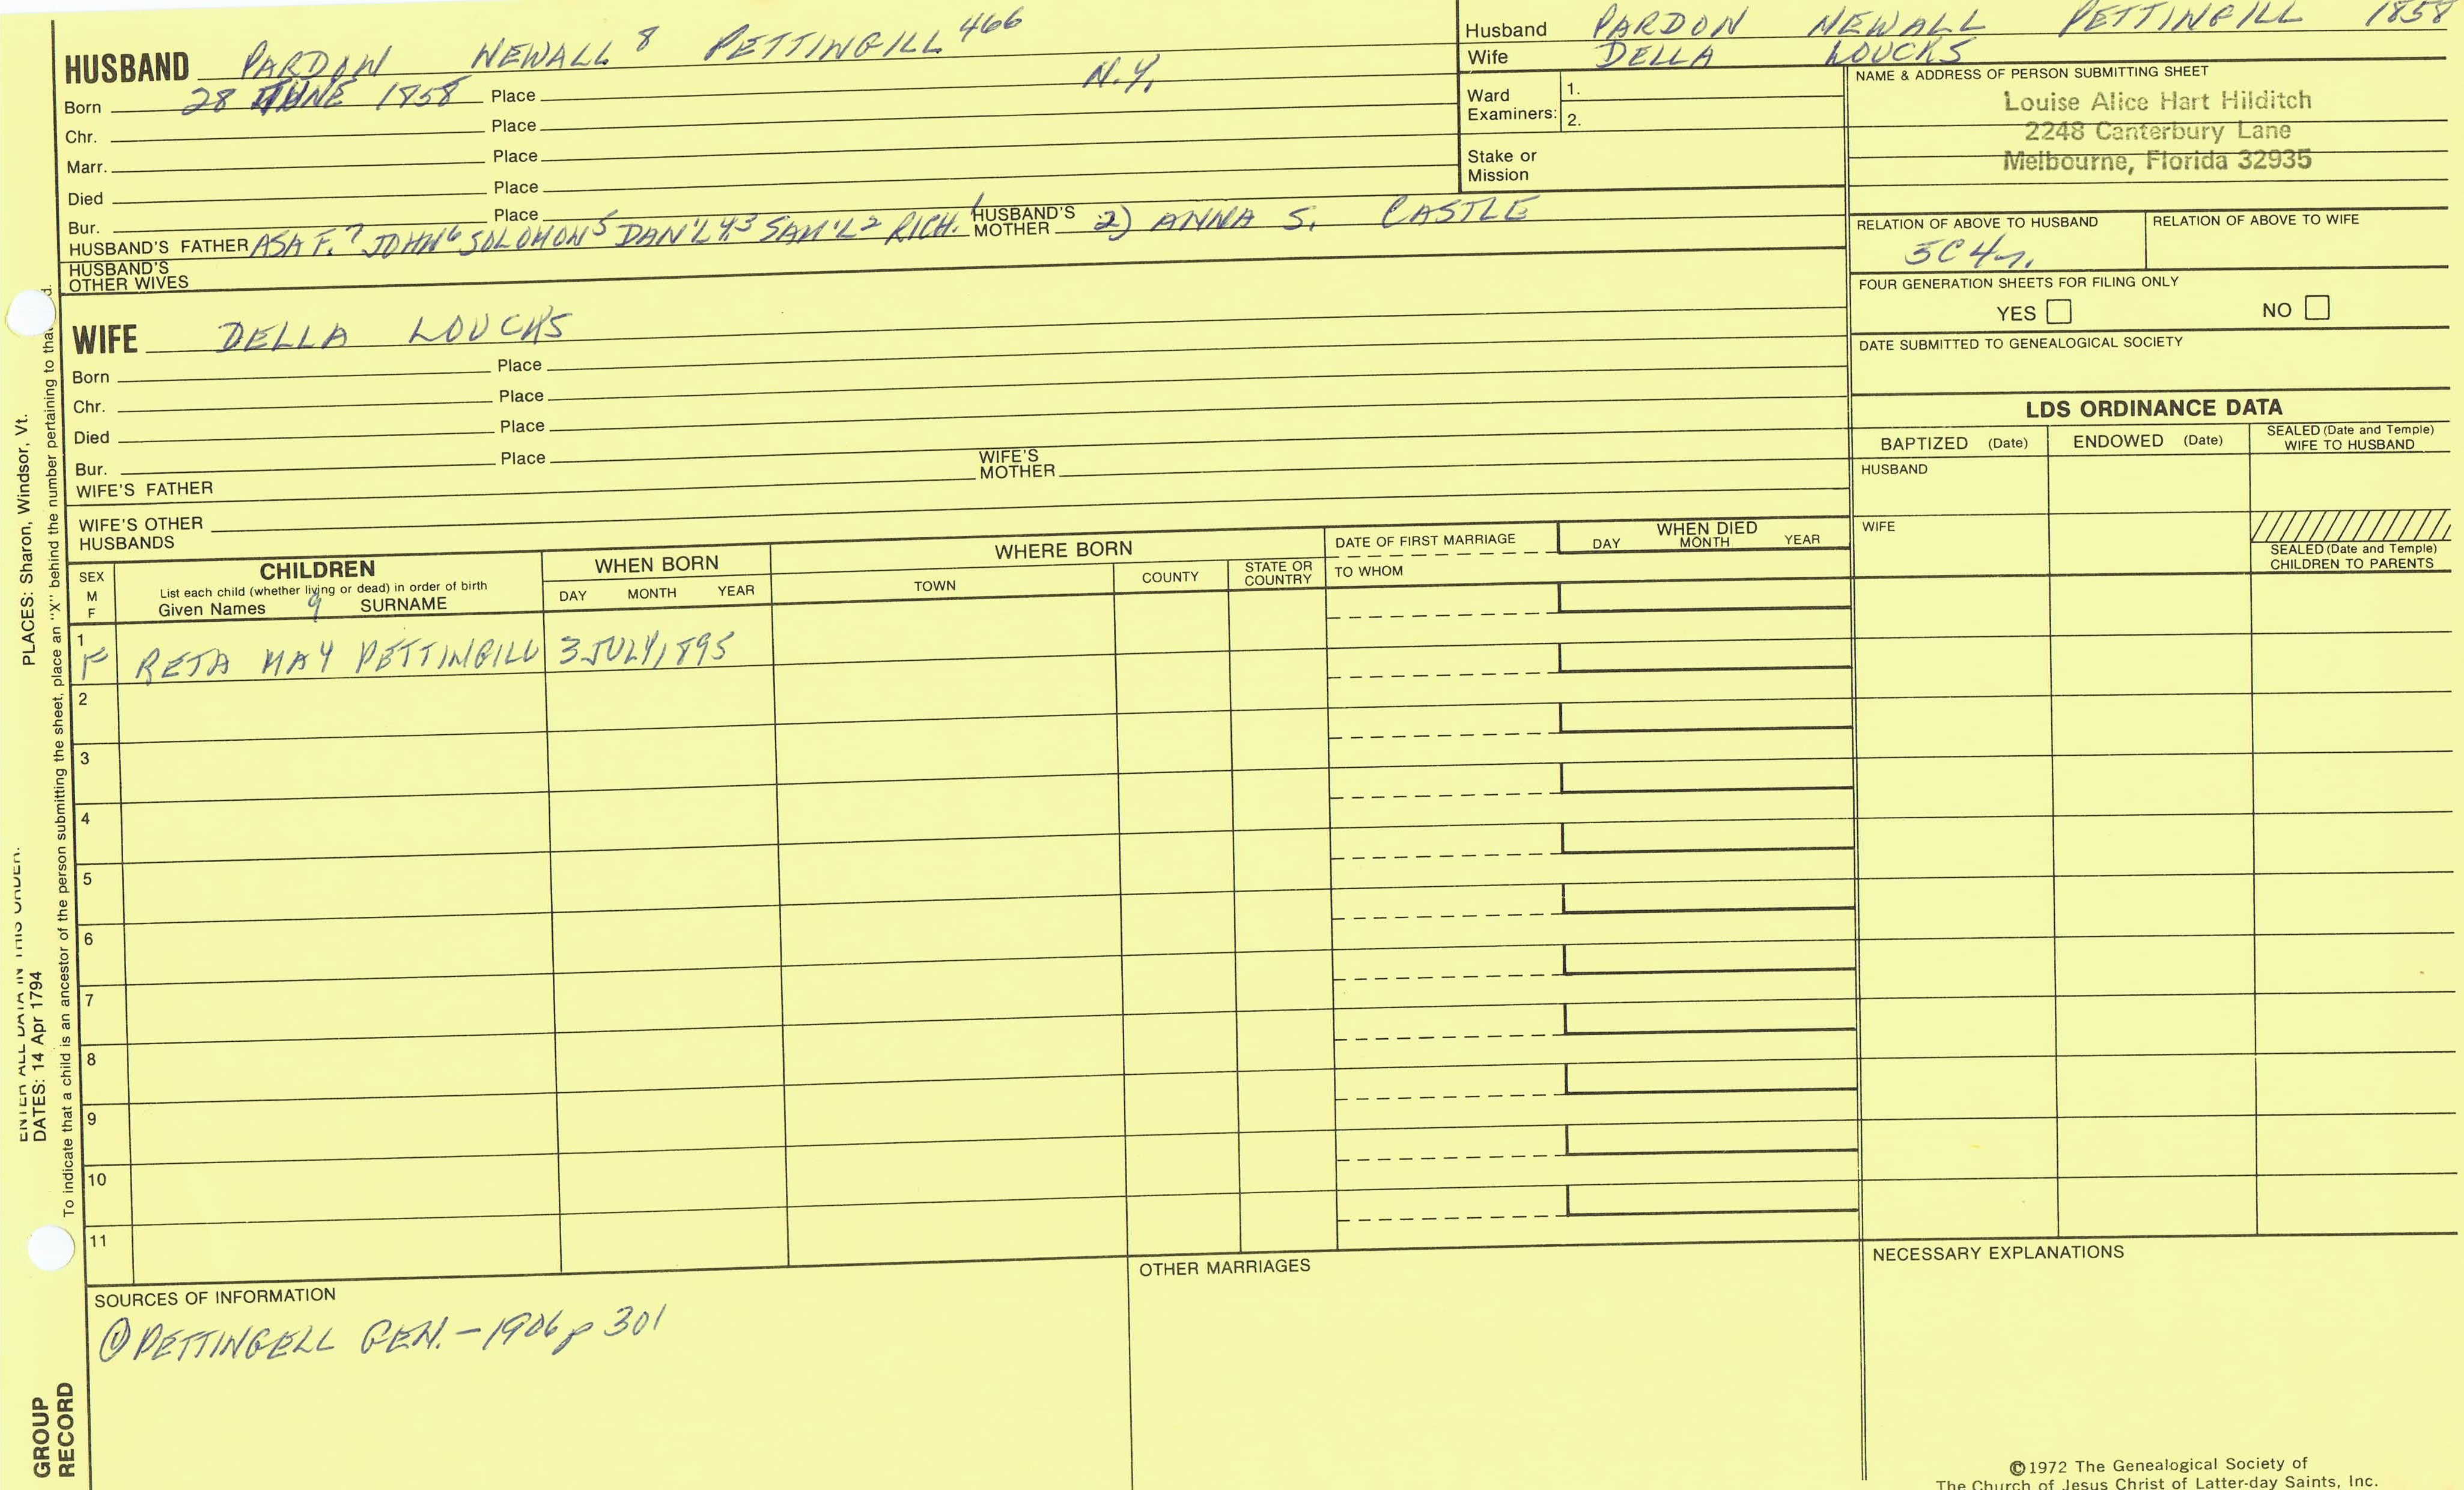 HUSBAND PARDON NEWALL 8 PETTINGILL 466
Born 28 JUNE 1858 Place N.Y.
Chr. Place
Marr. Place
Died Place
Bur. Place
HUSBAND'S FATHER ASA F. 7 JOHN 6 SOLOMON 5 DAN'L 4,3 SAM'L 2 RICH. 1 HUSBAND'S MOTHER 2) ANNA S. CASTLE
HUSBAND'S OTHER WIVES
WIFE DELLA LOUCKS
Born Place
Chr. Place
Died Place
Bur. Place
WIFE'S FATHER WIFE'S MOTHER
WIFE'S OTHER HUSBANDS
Husband PARDON NEWALL PETTINGILL 1858
Wife DELLA LOUCKS
Ward Examiners: 1.
2.
Stake or Mission
NAME & ADDRESS OF PERSON SUBMITTING SHEET
Louise Alice Hart Hilditch
2248 Canterbury Lane
Melbourne, Florida 32935
RELATION OF ABOVE TO HUSBAND RELATION OF ABOVE TO WIFE
5C4r.
FOUR GENERATION SHEETS FOR FILING ONLY
YES NO
DATE SUBMITTED TO GENEALOGICAL SOCIETY
LDS ORDINANCE DATA
BAPTIZED (Date) ENDOWED (Date) SEALED (Date and Temple) WIFE TO HUSBAND
HUSBAND
WIFE
SEALED (Date and Temple) CHILDREN TO PARENTS
SEX M F CHILDREN
List each child (whether living or dead) in order of birth
Given Names 9 SURNAME
WHEN BORN
DAY MONTH YEAR
WHERE BORN
TOWN COUNTY STATE OR COUNTRY
DATE OF FIRST MARRIAGE
TO WHOM
WHEN DIED
DAY MONTH YEAR
1 F RETA MAY PETTINGILL 3 JULY, 1895
2
3
4
5
6
7
8
9
10
11
SOURCES OF INFORMATION
① PETTINGELL GEN. - 1906 p 301
OTHER MARRIAGES
NECESSARY EXPLANATIONS
©1972 The Genealogical Society of
The Church of Jesus Christ of Latter-day Saints, Inc.
GROUP RECORD
ENTER ALL DATA IN THIS ORDER:
DATES: 14 Apr 1794
PLACES: Sharon, Windsor, Vt.
To indicate that a child is an ancestor of the person submitting the sheet, place an "X" behind the number pertaining to that